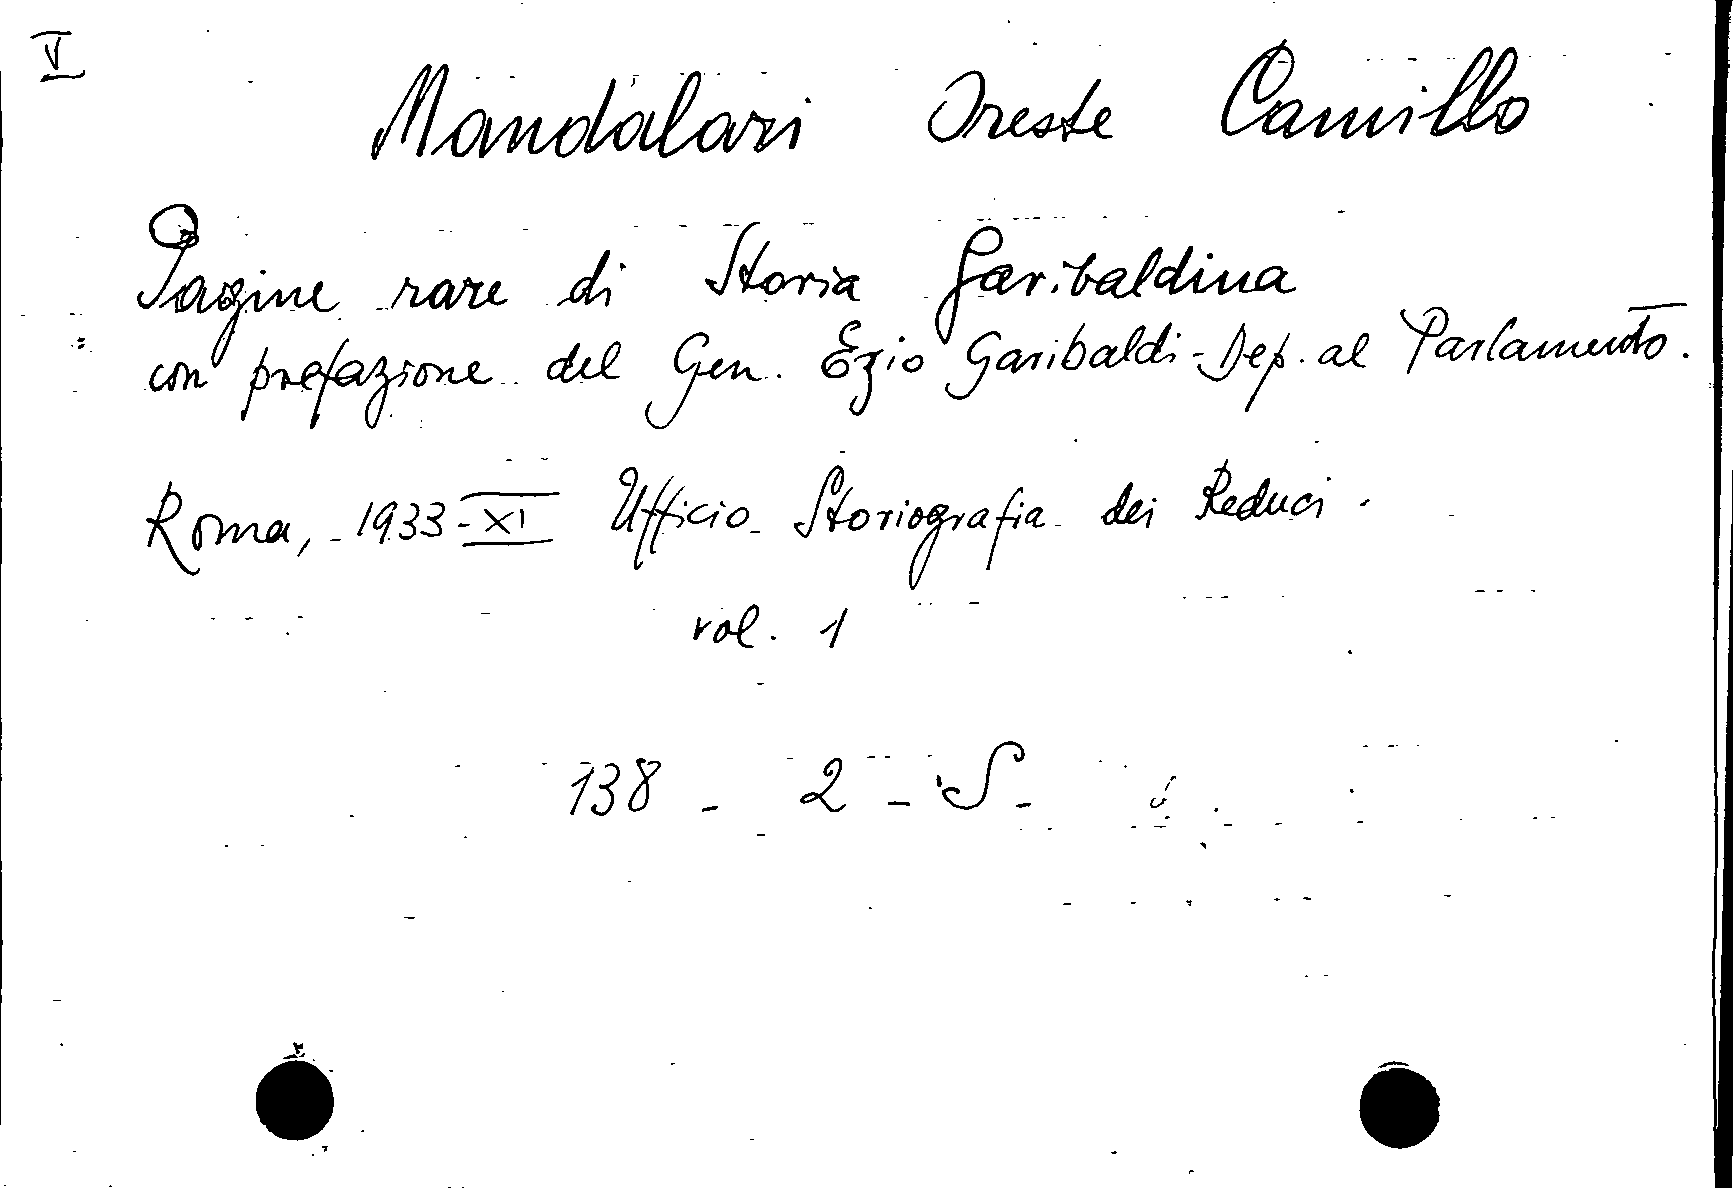 V
Mandalari Oreste Camillo
Pagine rare di Storia Garibaldina
con prefazione del Gen. Ezio Garibaldi - Dep. al Parlamento.
Roma, - 1933 - XI Ufficio Storiografia dei Reduci.
vol. 1
138 - 2 - S -